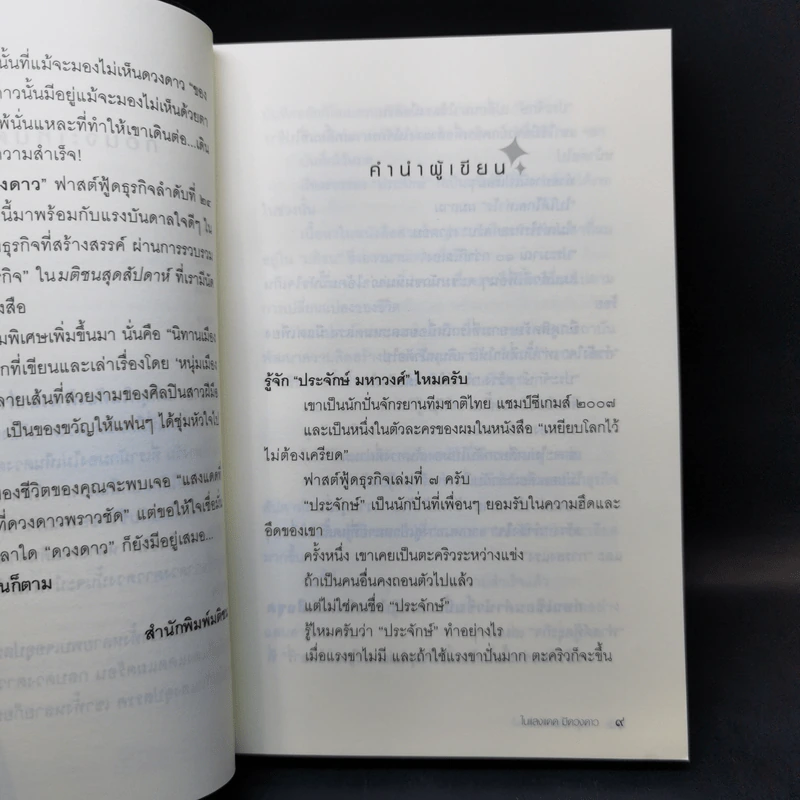 นั้นที่แม้จะมองไม่เห็นดวงดาว “ของ
ดาวนั้นมีอยู่แม้จะมองไม่เห็นด้วยตา
พ้นั่นแหละที่ทำให้เขาเดินต่อ...เดิน
ความสำเร็จ!
วงดาว” ฟาสต์ฟู้ดธุรกิจลำดับที่ ๒๔
นี้มาพร้อมกับแรงบันดาลใจดีๆ ใน
ธุรกิจที่สร้างสรรค์ ผ่านการรวบรวม
กิจ” ในมติชนสุดสัปดาห์ ที่เรามีนัด
สือ
มพิเศษเพิ่มขึ้นมา นั่นคือ “นิทานเมือง
กที่เขียนและเล่าเรื่องโดย ‘หนุ่มเมือง
ลายเส้นที่สวยงามของศิลปินสาวฝีมือ
เป็นของขวัญให้แฟนๆ ได้ชุ่มหัวใจไป
องชีวิตของคุณจะพบเจอ “แสงแดดที่
ที่ดวงดาวพราวชัด” แต่ขอให้ใจเชื่อมั่น
ลาใด “ดวงดาว” ก็ยังมีอยู่เสมอ...
นก็ตาม
สำนักพิมพ์มติชน
คำนำผู้เขียน
รู้จัก “ประจักษ์ มหาวงศ์” ไหมครับ
เขาเป็นนักปั่นจักรยานทีมชาติไทย แชมป์ซีเกมส์ ๒๐๐๗
และเป็นหนึ่งในตัวละครของผมในหนังสือ “เหยียบโลกไว้
ไม่ต้องเครียด”
ฟาสต์ฟู้ดธุรกิจเล่มที่ ๗ ครับ
“ประจักษ์” เป็นนักปั่นที่เพื่อนๆ ยอมรับในความฮึดและ
อึดของเขา
ครั้งหนึ่ง เขาเคยเป็นตะคริวระหว่างแข่ง
ถ้าเป็นคนอื่นคงถอนตัวไปแล้ว
แต่ไม่ใช่คนชื่อ “ประจักษ์”
รู้ไหมครับว่า “ประจักษ์” ทำอย่างไร
เมื่อแรงขาไม่มี และถ้าใช้แรงขาปั่นมาก ตะคริวก็จะขึ้น
ในแสงแดด มีดวงดาว ๙